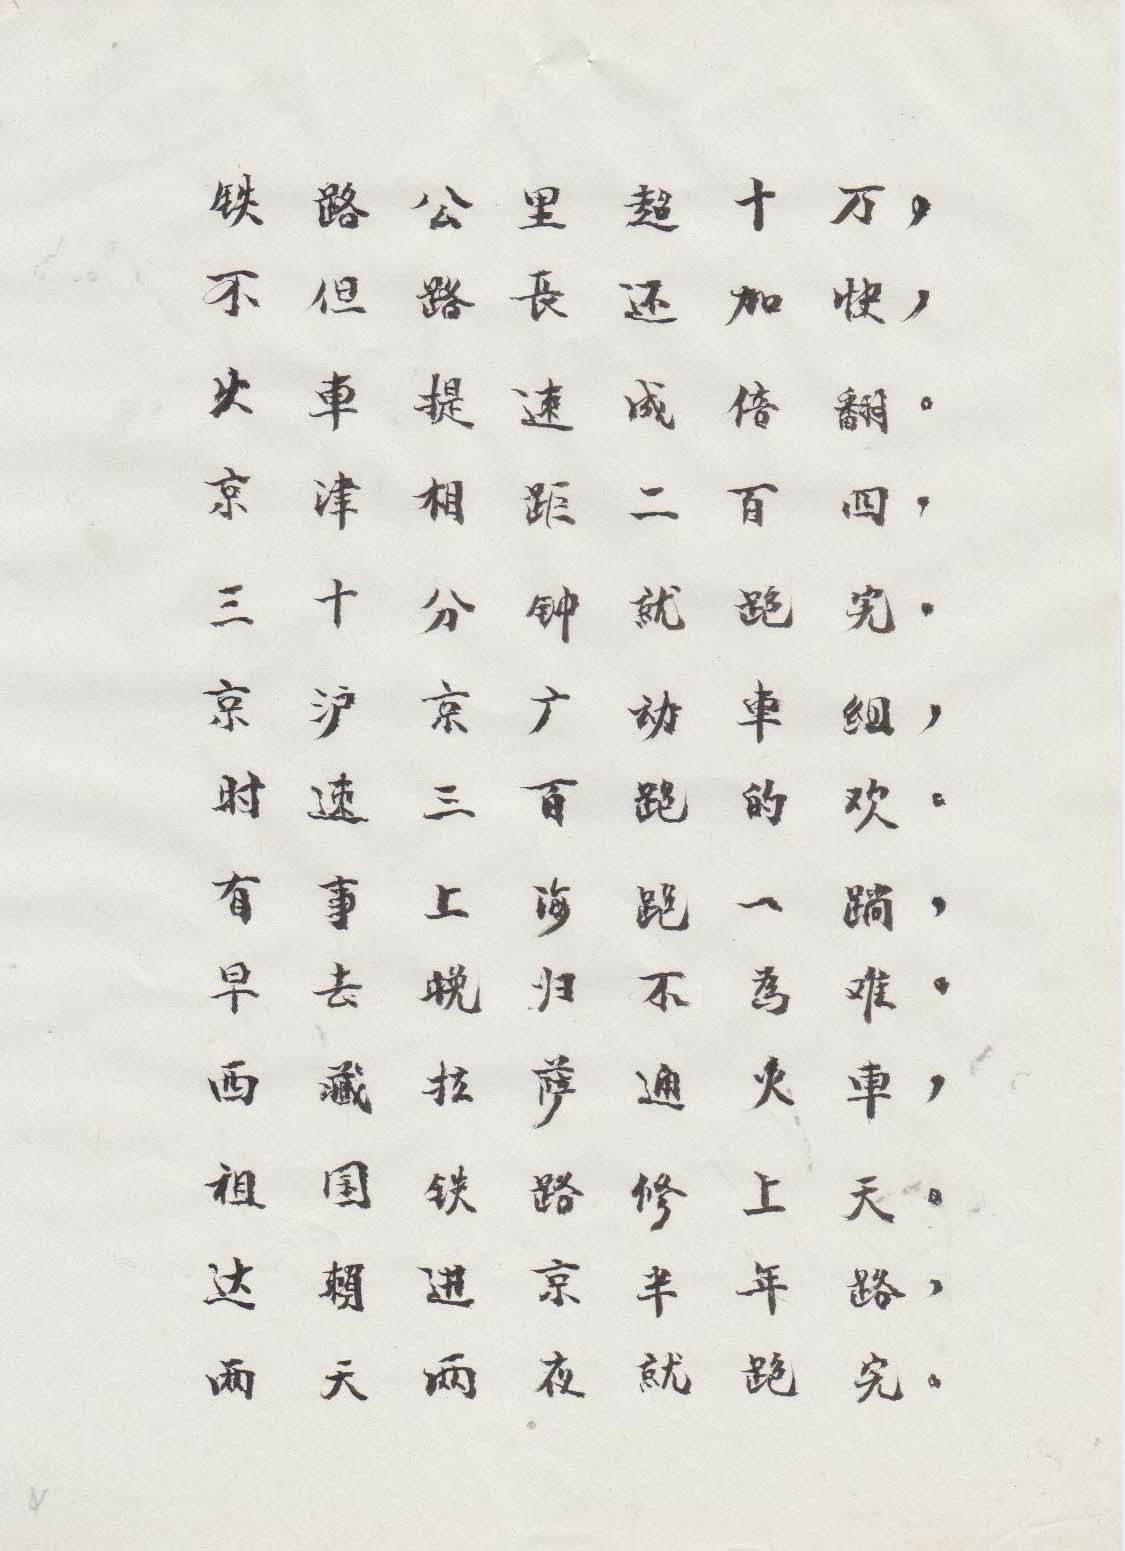 铁路公里超十万，
不但路長还加快，
火車提速成倍翻。
京津相距二百四，
三十分钟就跑完。
京沪京广动車组，
时速三百跑的欢。
有事上海跑一趟，
早去晚归不為难。
西藏拉萨通火車，
祖国铁路修上天。
达賴进京半年路，
两天两夜就跑完。